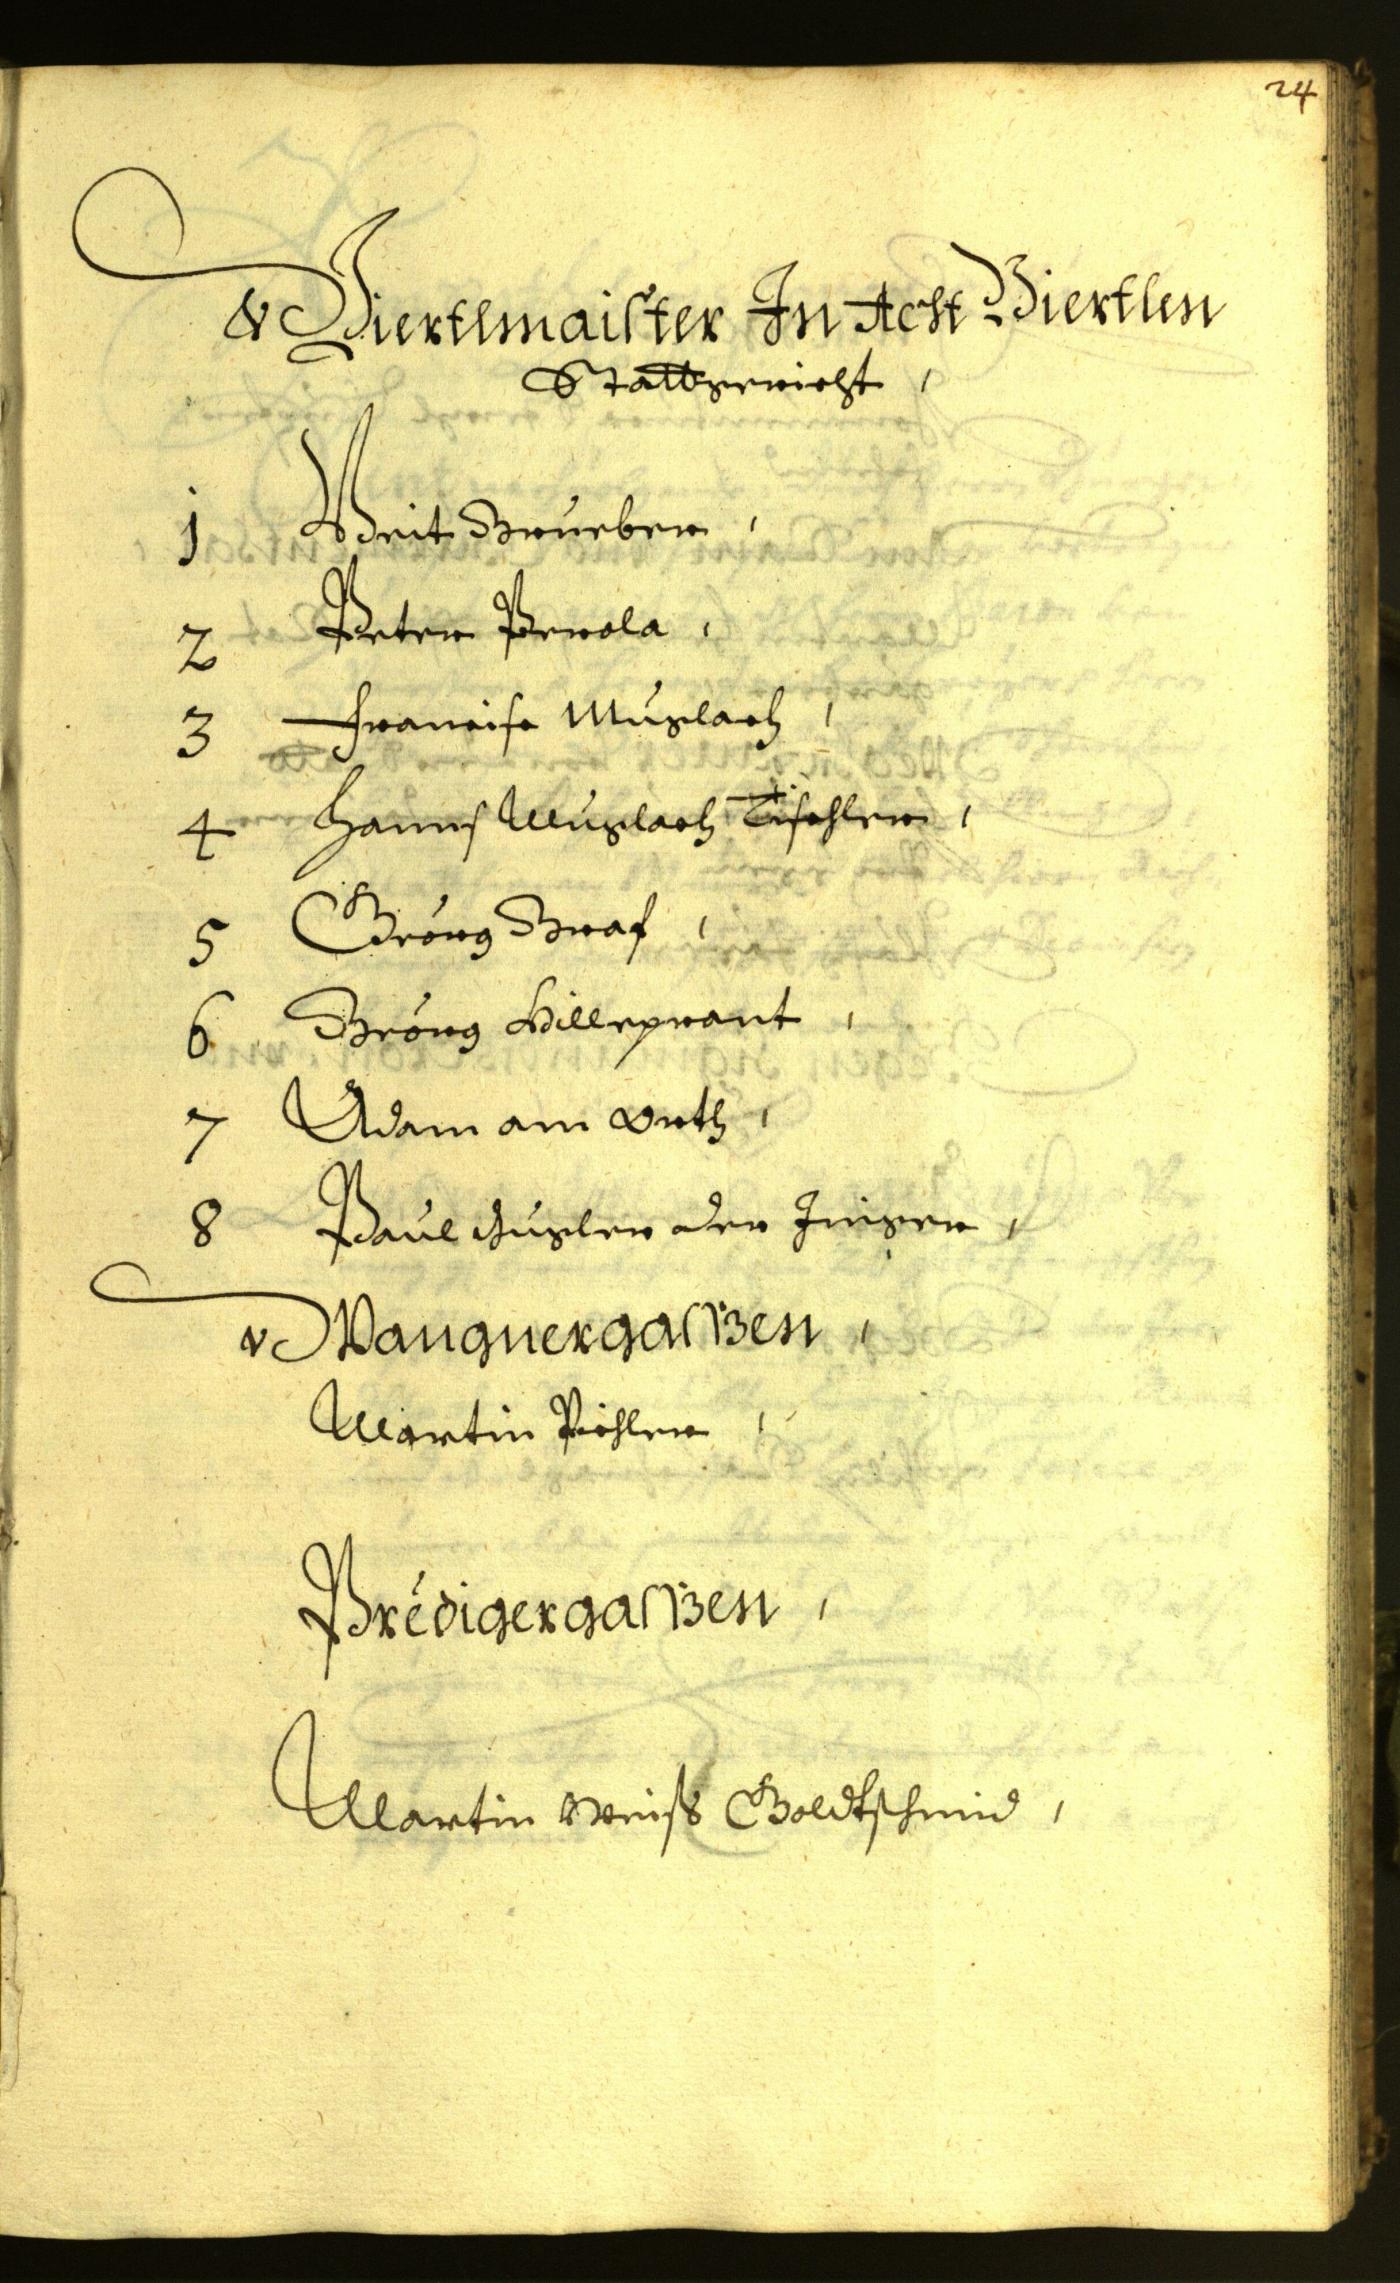 24
Viertlmaister In Acht Viertlen
Stattgericht,
1 Veit Grueber,
2 Peter Perola,
3 Francisc Muglach,
4 Hanns Muglach Tischler,
5 Georg Graf,
6 Georg Hilleprant,
7 Adam am Orth,
8 Paul Gugler der Junger,
Wangnergasszen,
Martin Pichler,
Predigergasszen,
Martin Weiss Goldtschmid,